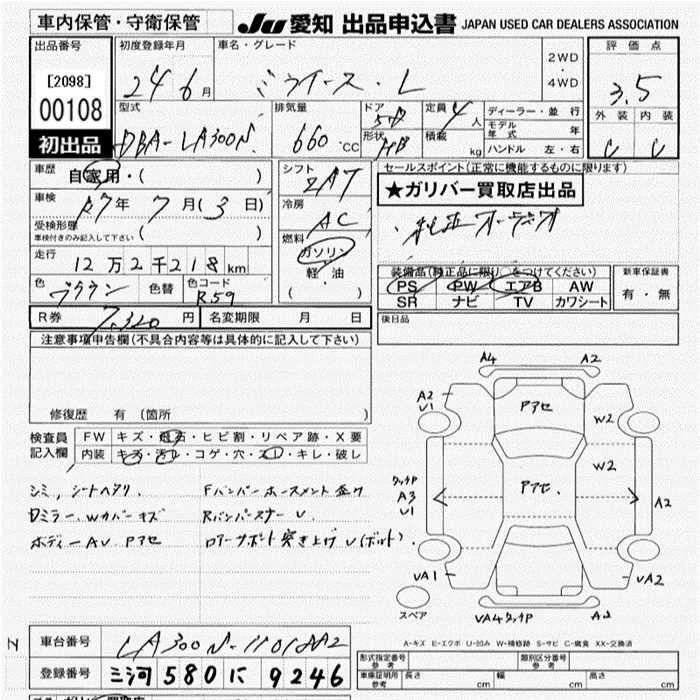 車内保管・守衛保管
JU 愛知 出品申込書 JAPAN USED CAR DEALERS ASSOCIATION
出品番号
[2098]
00108
初出品
初度登録年月
24 6月
車名・グレード
ミライース・L
2WD
・
4WD
評価点
3.5
外装 内装
C C
型式
DBA-LA300N
排気量
660 cc
ドア
5D
形状
HB
定員
4人
積載
kg
ディーラー・並行
モデル年式 年
ハンドル 左・右
車歴
自家用・( )
車検
R7年 7月( 3日)
受検形態
車検付きのみ記入して下さい ( )
走行
12万2千218km
色
ブラウン
色替
色コード
R59
シフト
2AT
冷房
AC
燃料
ガソリン
軽・油
( )
セールスポイント(正常に機能するものに限ります)
★ガリバー買取店出品
・純正オーデオ
装備品(純正品に限り○をつけてください)
PS PW エアB AW
SR ナビ TV カワシート
新車保証書
有・無
R券 7,320円
名変期限 月 日
後日品
注意事項申告欄(不具合内容等は具体的に記入して下さい)
修復歴 有(箇所 )
検査員
記入欄
FW キズ・飛石・ヒビ割・リペア跡・X要
内装 キズ・汚レ・コゲ・穴・スレ・キレ・破レ
シミ、シートヘタリ.
Fバンパー
Dミラー、Wカバーキズ
Rバンパー
ボディーAU Pアセ
ロアーサポート突き上げU(ボルト).
A4 A2
A2
U1
Pアセ
W2
W2
Pアセ.
タッチP
A3
U1
A2
UA1
UA2
スペア
UA4タッチP
A2
A-キズ E-エクボ U-凹み W-補修跡 S-サビ C-腐食 XX-交換済
車台番号
登録番号 三河 580 に 9246
型式指定番号
参考
類別区分番号
参考
車庫証明用
参考
長さ cm
幅 cm
高さ cm